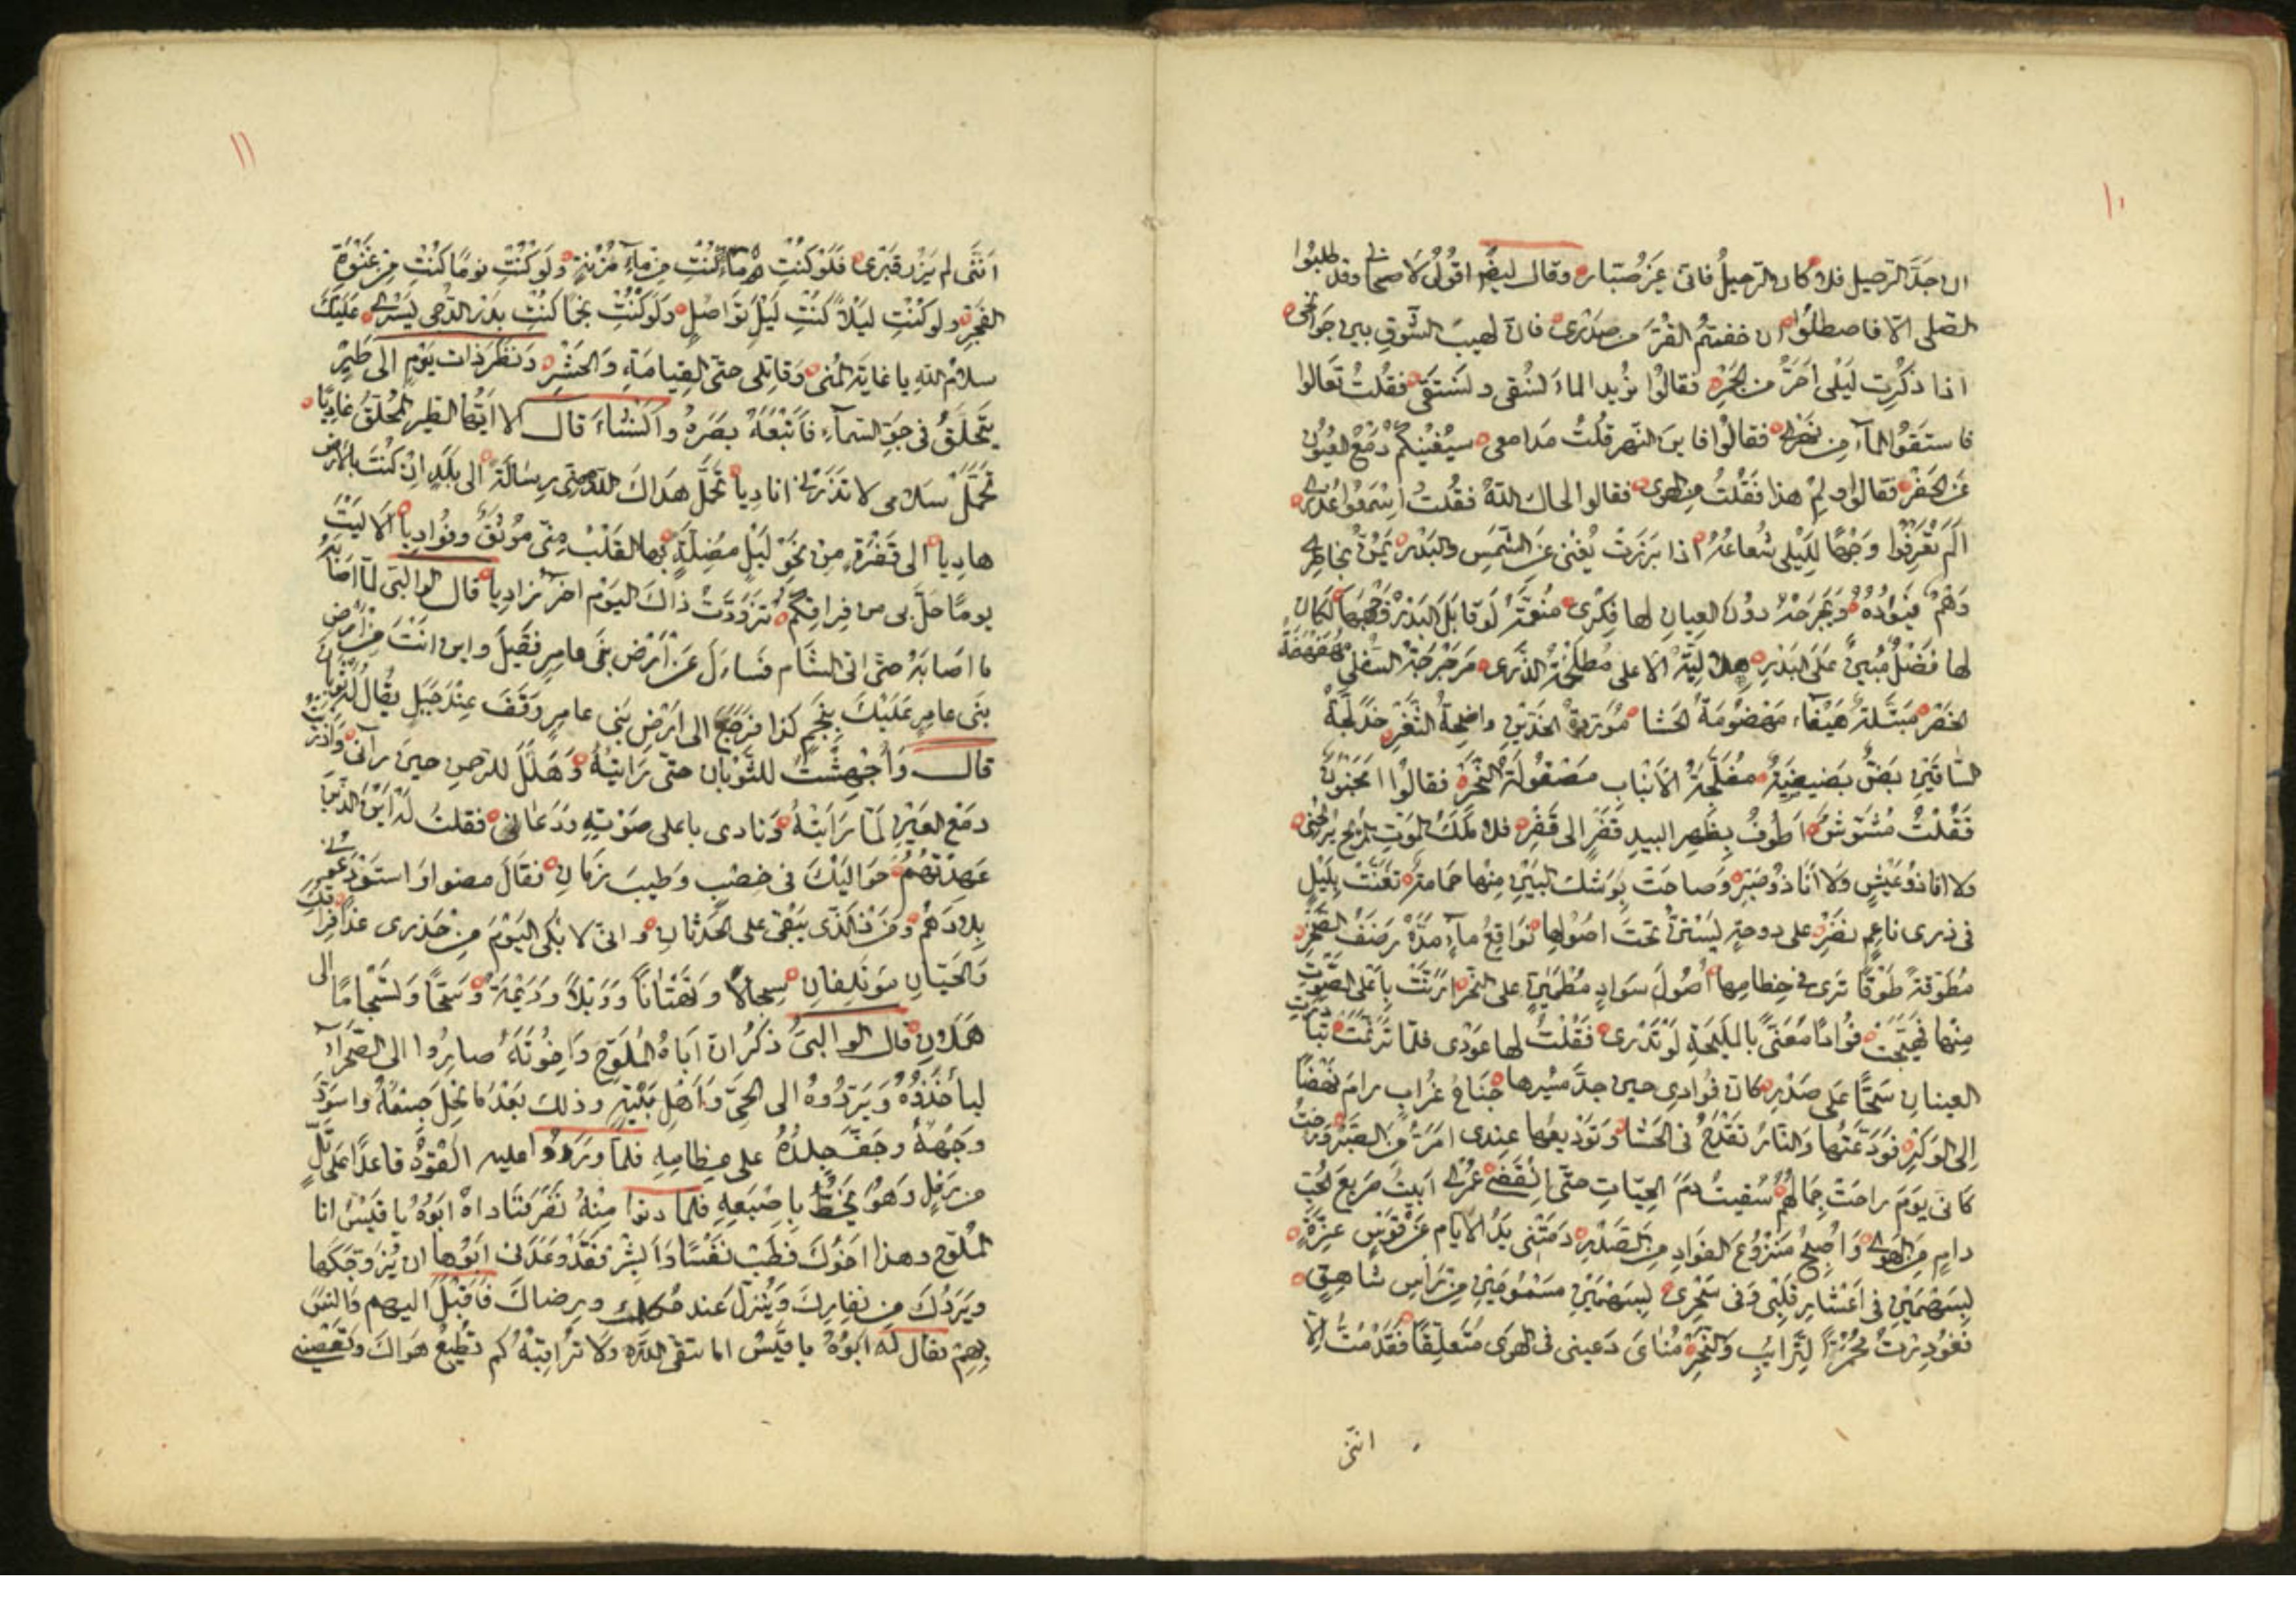 ١٠
ان جدّ الرحيل فلا كان الرحيل فانى غير صبّار وقال ايضًا اقول لاصحابى وقد طلبوا
الصلى الا فاصطلوا ان خفتم القرّ من صدرى فان لهيب الشوق بين جوانحى
اذا ذكرت ليلى احرّ من الجمر فقالوا نريد الماء لنسقى ونستقى فقلت تعالوا
فاستقوا المآء من نهرى فقالوا فاين النهر قلت مدامعى سيغنيكم دمع العيون
عن الحفر فقالوا ولم هذا فقلت من الهوى فقالوا لحاك الله فقلت اسمعوا عذرى
الم تعرفوا وجهًا لليلى شعاعه اذا برزت يغنى عن الشمس والبدر يمرّ بخاطرى
وهم فيوده ويجرحه دون العيان لها فكرى منعّمة لو قابل البدر وجهها لكان
لها فضل مبين على البدر هلالية الاعلى مطلخة الذرى مرجرجة السفلى مهفهفة
الخصر مبتّلة هيفاء مهضومة الحشا مورّدة الخدّين واضحة الثغر خدلّجة
الساقين بضّ بضيضة مفلّجة الانياب مصقولة النحر فقالوا امجنون
فقلت مشوّش اطوف بظهر البيد قفر الى قفر فلا ملك الموت المريح يريحنى
ولا انا ذو عيش ولا انا ذو صبر وصاحت بوشك البين منها حمامة تغنّت بليل
فى ذرى ناعم نضر على دوحة يستنّ تحت اصولها نواقع مآء مدّه رصف الصخر
مطوّقة طوقًا ترى فى خطامها اصول سواد مطمئن على النحر ارنّت باعلى الصوت
منها فهيّجت فؤادًا معنّى بالمليحة لو تدرى فقلت لها عودى فلمّا ترنّمت تبادرت
العينان سحّا على صدر كان فؤادى حين جدّ مسيرها جناح غراب رام نهضًا
الى الوكر فودّعتها والنار تقدح فى الحشا وتوديعها عندى امرّ من الصبر ورحت
كانى يوم راحت جمالهم سقيت دم الحيّات حتى انقضى عمرى ابيت صريع الحب
دام من الهوى واصبح منزوع الفؤاد من الصدر رمتنى يد الايام عن قوس غرّة
بسهمين فى اعشار قلبى وفى سحرى بسهمين مسمومين من راس شاهق
فغودرت محمرّ الترائب والنحر مناى دعينى فى الهوى متعلّقًا فقد متّ الا
اننى
١١
اننى لم يزر قبرى فلو كنت مآء كنت من مآء مزنة ولو كنت نومًا كنت من غفوة
الفجر ولو كنت ليلا كنت ليل تواصل ولو كنت نجمًا كنت بدر الدجى يسرى عليك
سلام الله يا غاية المنى وقاتلى حتى القيامة والحشر ونظر ذات يوم الى طير
يتحلّق فى جو السمآء فاتبعه بصره وانشاء قال الا ايها الطير المحلّق غاديًا
تحمّل سلامى لا تذرنى اناديا تحمّل هداك الله منى رسالة الى بلد ان كنت بالارض
هاديا الى قفرة من نحو ليلى مضلّة بها القلب منى موثق وفؤاديا الا ليت
يومًا حلّ بى من فراقكم تزوّدت ذاك اليوم اخر زاديا قال الوالبى لمّا اصابه
ما اصابه حتى اتى الشام فسايل عن ارض بنى عامر فقيل واين انت من ارض
بنى عامر عليك بنجم كذا فرجع الى ارض بنى عامر وقف عند جبل يقال له ثوبان
قال واجهشت للثوبان حتى رايته وهلّل للرحمن حين رآنى واذريت
دمع العين لمّا رايته ونادى باعلى صوته ودعانى فقلت له اين الذين
عهدتهم حواليك فى خصب وطيب زمان فقال مضوا واستودعونى
بلادهم ومن الذى يبقى على الحدثان وانى لابكى اليوم من حذرى غدًا فراقك
والحيّان مؤتلفان سجالا وتهتانا ووبلا وديمة وسحّا وتسجامًا الى
هملان قال الوالبى ذكر ان اباه الملوّح واخوته صاروا الى الصحرآء
ليأخذوه ويردّوه الى الحىّ واهل بيته وذلك بعد ما نحل جسمه واسودّ
وجهه وجفّ جلده على عظامه فلما وردوا عليه القوه قاعدًا على تلّ
من رمل وهو يخطّ باصبعه فلما دنوا منه نفر فناداه ابوه يا قيس انا
الملوّح وهذا اخوك فطب نفسًا وابشر فقد وعدنى ابوها ان يزوّجكها
ويردّك من نفارك وينزل عند حكمك ورضاك فاقبل اليهم وانس
بهم فقال له ابوه يا قيس اما تتقى الله ولا تراقبه كم تطيع هواك وتعصينى